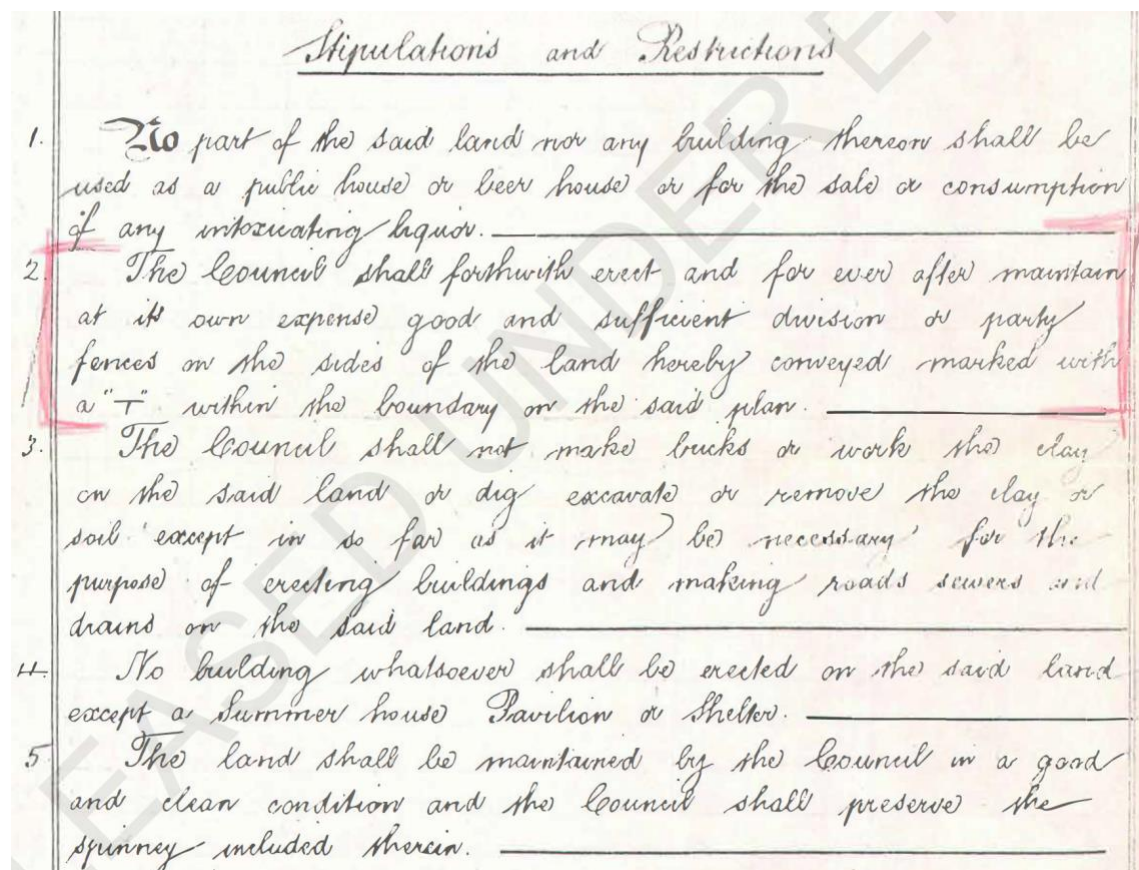 Stipulations and Restrictions
1. No part of the said land nor any building thereon shall be
used as a public house or beer house or for the sale or consumption
of any intoxicating liquor.
2. The Council shall forthwith erect and for ever after maintain
at its own expense good and sufficient division or party
fences on the sides of the land hereby conveyed marked with
a "T" within the boundary on the said plan.
3. The Council shall not make bricks or work the clay
on the said land or dig excavate or remove the clay or
soil except in so far as it may be necessary for the
purpose of erecting buildings and making roads sewers and
drains on the said land.
4. No building whatsoever shall be erected on the said land
except a Summer house Pavilion or Shelter.
5. The land shall be maintained by the Council in a good
and clean condition and the Council shall preserve the
spinney included therein.
EASED UNDER